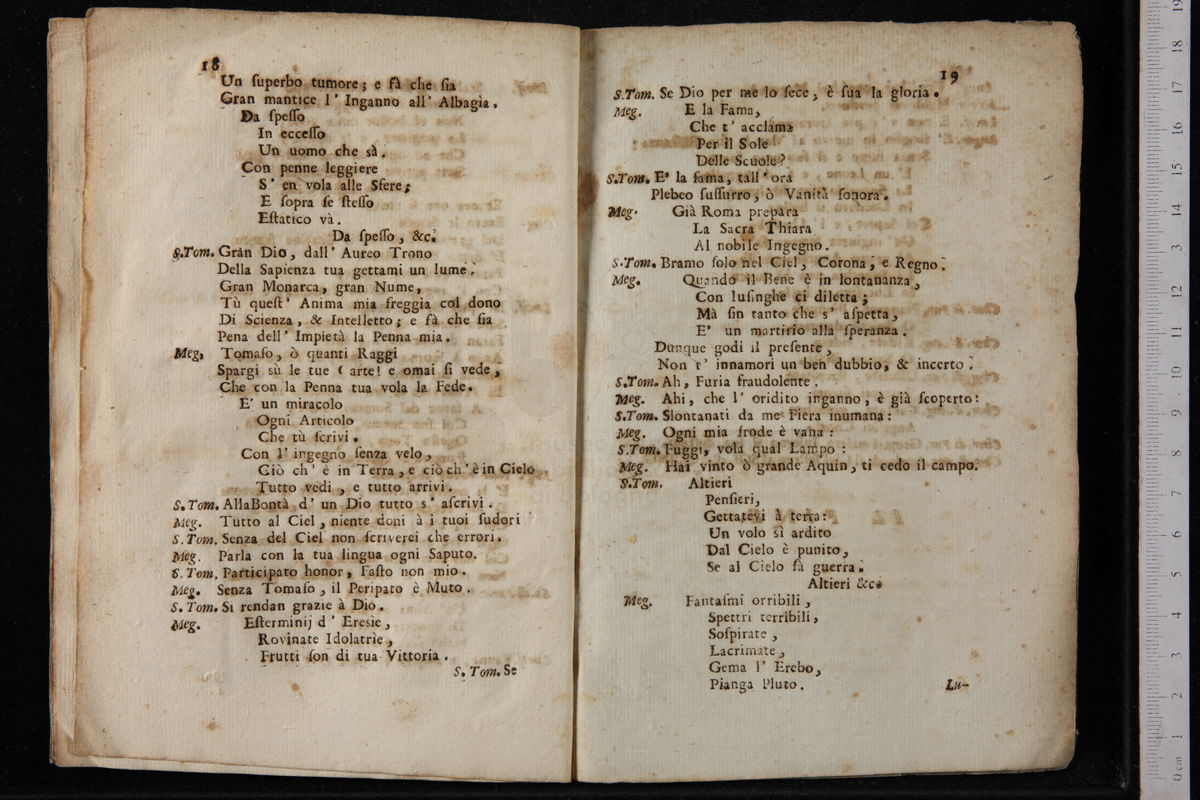 18
Un ſuperbo tumore; e fà che ſia
Gran mantice l' Inganno all' Albagìa.
Da ſpeſſo
In ecceſſo
Un uomo che sà.
Con penne leggiere
S' en vola alle Sfere;
E ſopra ſe ſteſſo
Eſtatico và.
Da ſpeſſo, &c.
S.Tom. Gràn Dio, dall' Aureo Trono
Della Sapienza tua gettami un lume.
Gran Monarca, gran Nume,
Tù queſt' Anima mia freggia col dono
Di Scienza, & Intelletto; e fà che ſia
Pena dell' Impietà la Penna mia.
Meg. Tomaſo, ò quanti Raggi
Spargi sù le tue (arte! e omai ſi vede,
Che con la Penna tua vola la Fede.
E' un miracolo
Ogni Articolo
Che tù ſcrivi.
Con l' ingegno ſenza velo,
Ciò ch' è in Terra, e ciò ch' è in Cielo
Tutto vedi, e tutto arrivi.
S. Tom. AllaBontà d' un Dio tutto s' aſcrivi.
Meg. Tutto al Ciel, niente doni à i tuoi ſudori
S. Tom. Senza del Ciel non ſcriverei che errori.
Meg. Parla con la tua lingua ogni Saputo.
S. Tom. Participato honor, Faſto non mio.
Meg. Senza Tomaſo, il Peripato è Muto.
S. Tom. Si rendan grazie à Dio.
Meg. Eſterminij d' Ereſie,
Rovinate Idolatrìe,
Frutti ſon di tua Vittoria.
S. Tom. Se
19
S.Tom. Se Dio per me lo fece, è ſua la gloria.
Meg. E la Fama,
Che t' acclama
Per il Sole
Delle Scuole?
S.Tom. E' la fama, tall' ora
Plebeo ſuſſurro, ò Vanità ſonora.
Meg. Già Roma prepara
La Sacra Thiara
Al nobile Ingegno.
S.Tom. Bramo ſolo nel Ciel, Corona, e Regno.
Meg. Quando il Bene è in lontananza,
Con luſinghe ci diletta;
Mà fin tanto che s' aſpetta,
E' un martirio alla ſperanza.
Dunque godi il preſente,
Non t' innamori un ben dubbio, & incerto.
S.Tom. Ah, Furia fraudolente.
Meg. Ahi, che l' oridito inganno, è già ſcoperto:
S.Tom. Slontanati da me Fiera inumana:
Meg. Ogni mia frode è vana:
S.Tom. Fuggi, vola qual Lampo:
Meg. Hai vinto ò grande Aquin, ti cedo il campo.
S.Tom. Altieri
Penſieri,
Gettatevi à terra:
Un volo sì ardito
Dal Cielo è punito,
Se al Cielo fà guerra.
Altieri &c.
Meg. Fantaſmi orribili,
Spettri terribili,
Soſpirate,
Lacrimate,
Gema l' Erebo,
Pianga Pluto.
Lu-